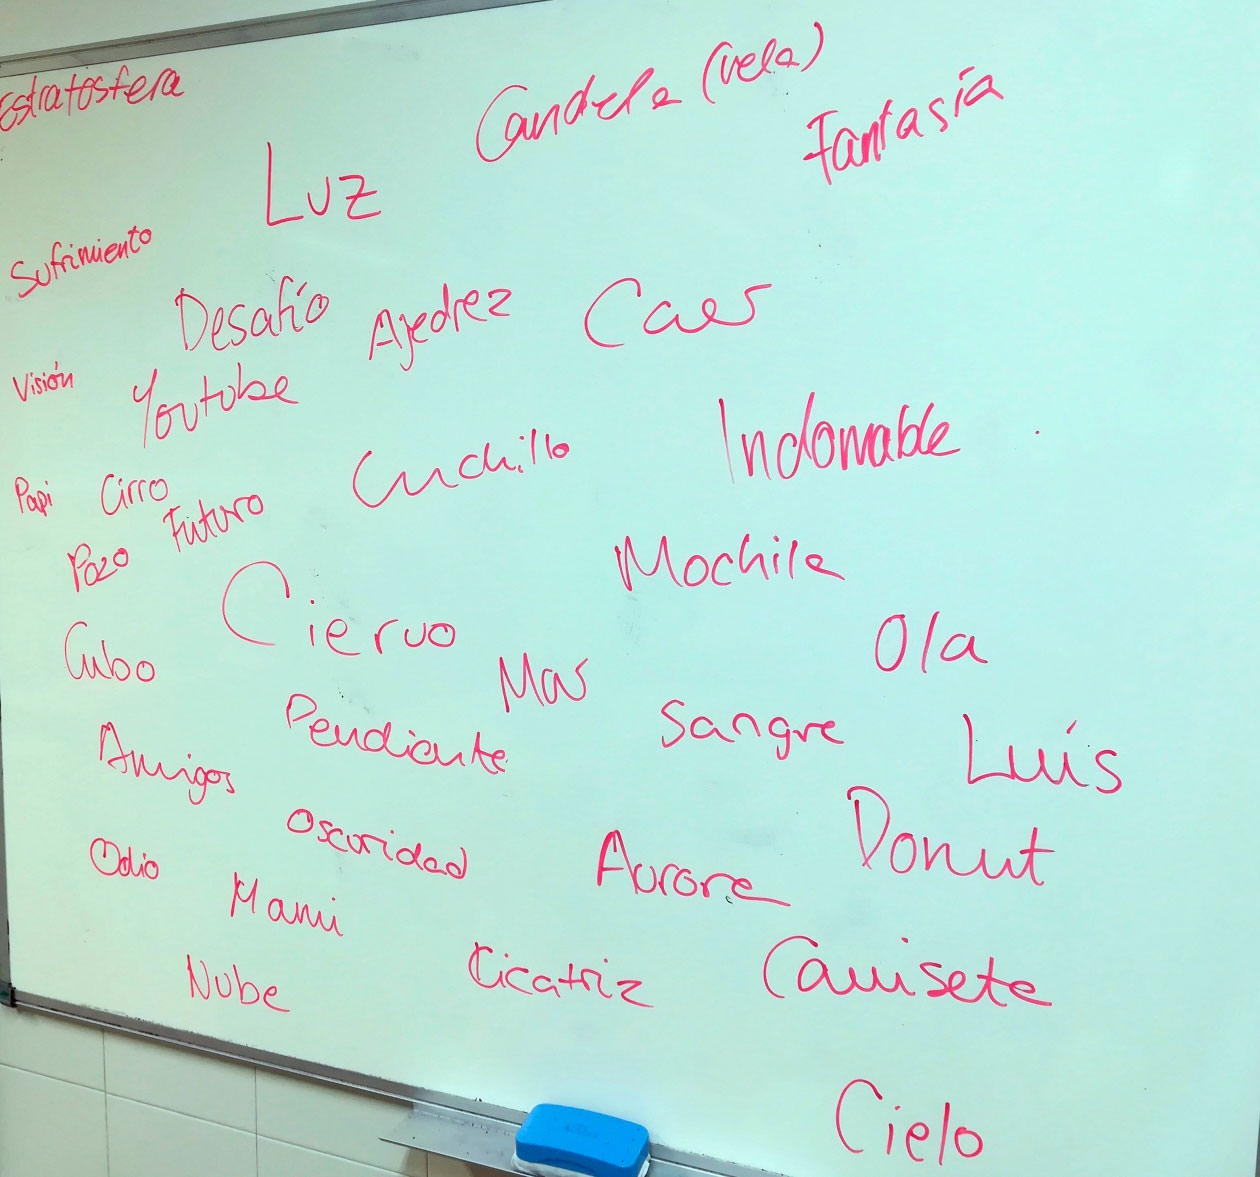 Estratosfera
Candela (vela)
Fantasía
Luz
Sufrimiento
Desafío
Ajedrez
Caer
Visión
Youtube
Cuchillo
Indomable
Papi
Cirro
Futuro
Pozo
Mochila
Ciervo
Ola
Cubo
Mar
Pendiente
Sangre
Luís
Amigos
Oscuridad
Aurora
Donut
Odio
Mami
Nube
Cicatriz
Camiseta
Cielo